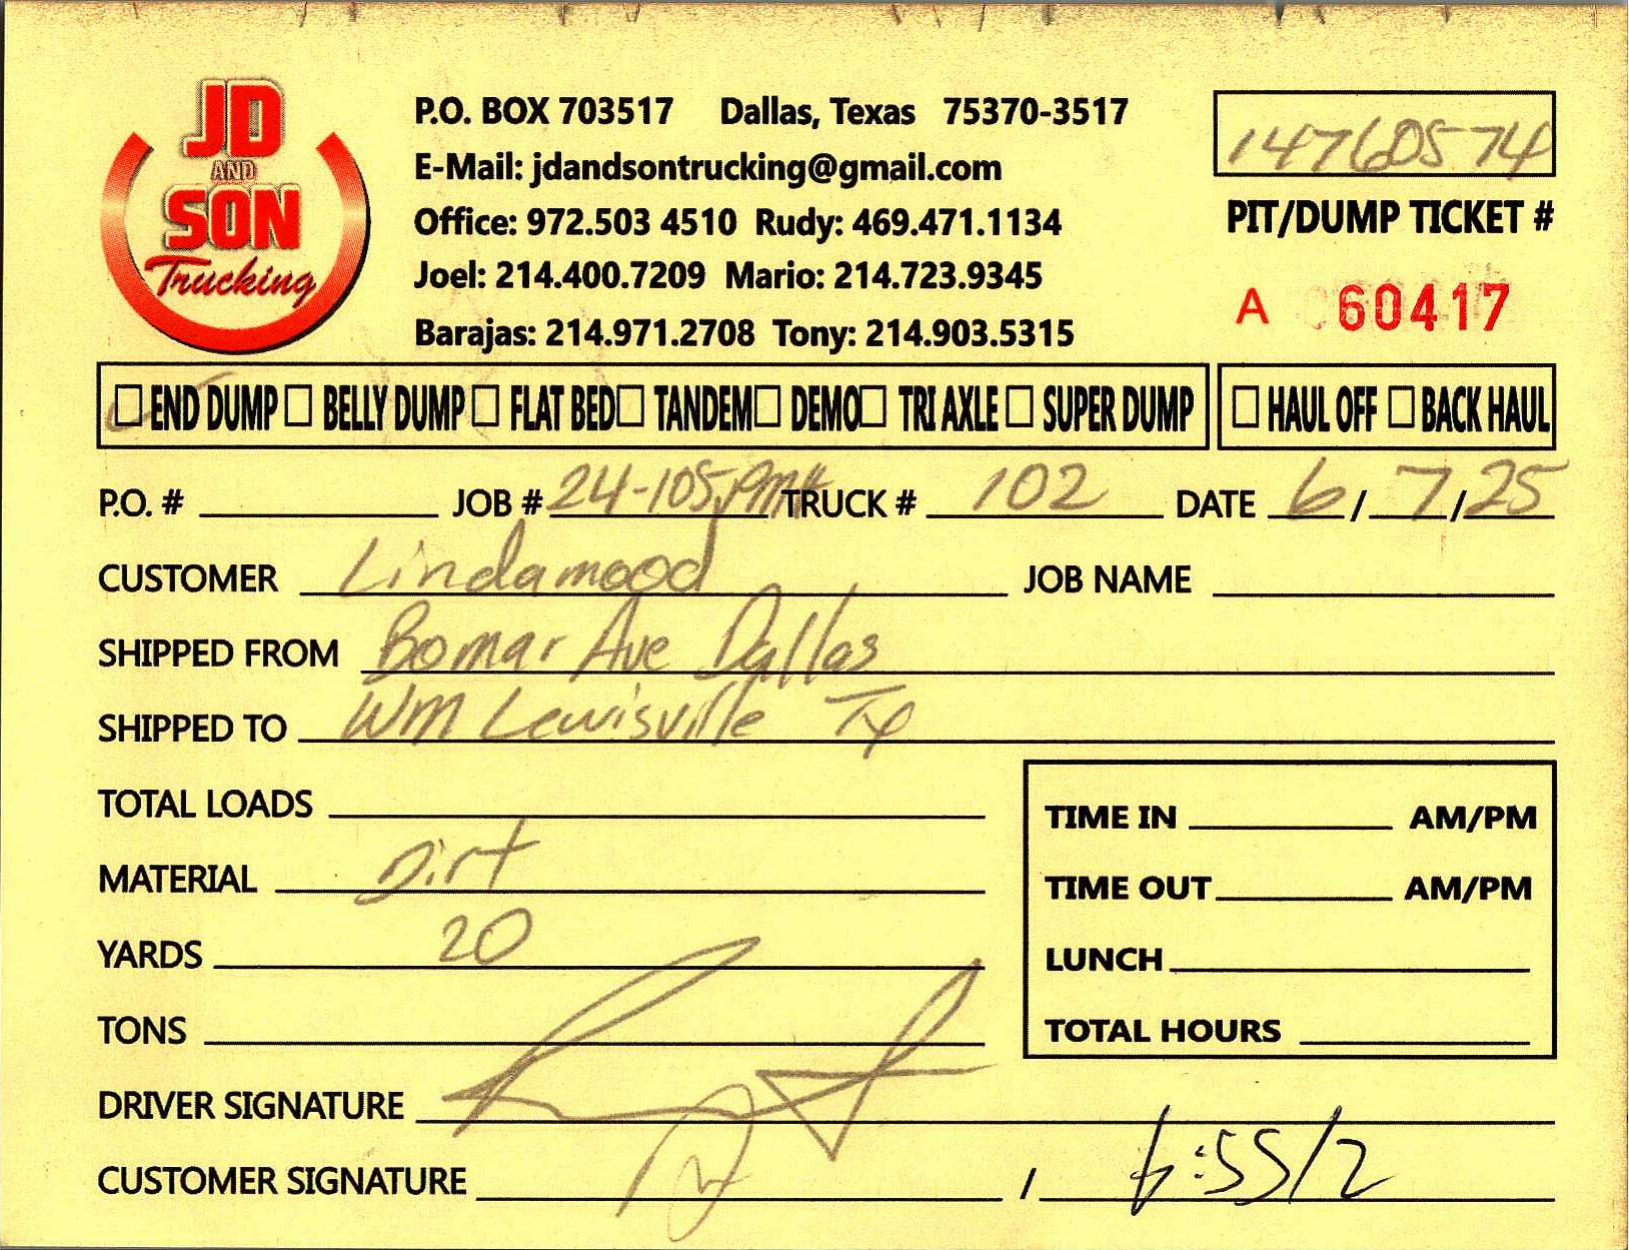 JD
AND
SON
Trucking
P.O. BOX 703517 Dallas, Texas 75370-3517
E-Mail: jdandsontrucking@gmail.com
Office: 972.503 4510 Rudy: 469.471.1134
Joel: 214.400.7209 Mario: 214.723.9345
Barajas: 214.971.2708 Tony: 214.903.5315
14760574
PIT/DUMP TICKET #
A 60417
☐ END DUMP ☐ BELLY DUMP ☐ FLAT BED ☐ TANDEM ☐ DEMO ☐ TRI AXLE ☐ SUPER DUMP ☐ HAUL OFF ☐ BACK HAUL
P.O. # JOB # 24-105 TRUCK # 102 DATE 6/7/25
CUSTOMER Lindamood JOB NAME
SHIPPED FROM Bomar Ave Dallas
SHIPPED TO WM Lewisville Tx
TOTAL LOADS
MATERIAL Dirt
YARDS 20
TONS
TIME IN AM/PM
TIME OUT AM/PM
LUNCH
TOTAL HOURS
DRIVER SIGNATURE
CUSTOMER SIGNATURE / 6:55/2